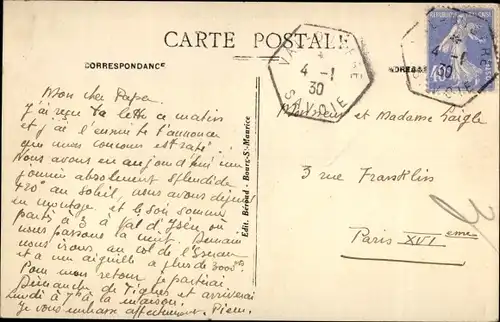 CARTE POSTALE
CORRESPONDANCE
VAL D'ISÈRE
4 -1
30
SAVOIE
Mon cher Papa
J'ai reçu ta lettre ce matin
et j'ai l'ennui de t'annoncer
que mon concours est raté.
Nous avons eu aujourd'hui une
journée absolument splendide
+20° au soleil, nous avons déjeuné
en montagne et le soir sommes
partis à 3 à Val d'Isère où
nous passons la nuit. Demain
nous irons au col de l'Iseran
et à une aiguille à plus de 3000m
Pour mon retour je partirai
Dimanche de Tignes et arriverai
lundi à 7h à la maison.
Je vous embrasse affectueusement. Pierre
Edit. Béraud - Bourg-St-Maurice
Monsieur et Madame Laigle
3 rue Franklin
Paris XVIeme